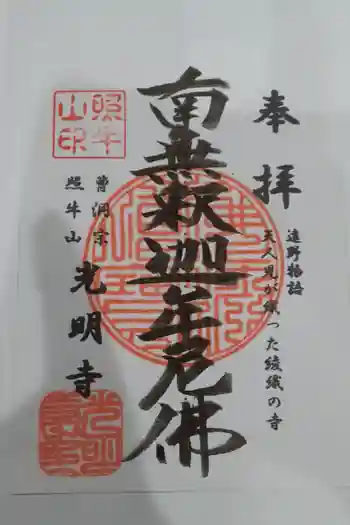 奉拝
遠野物語
天人児が織った綾織の寺
南無釈迦牟尼佛
曹洞宗
照牛山
光明寺
照牛
山印